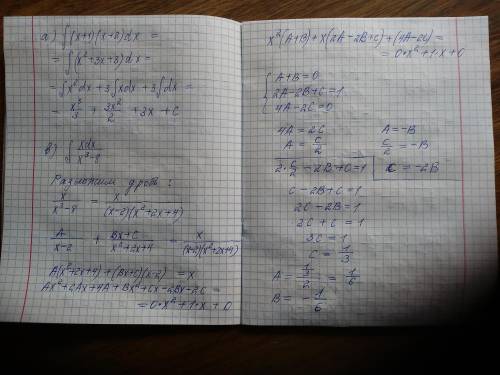 а) ∫(x+1)(x+2)dx =
= ∫(x²+3x+3)dx =
= ∫x²dx + 3∫xdx + 3∫dx =
= x³/3 + 3x²/2 + 3x + C
в) ∫ xdx/(x³-8)
Разложим дробь:
x/(x³-8) = x/((x-2)(x²+2x+4))
A/(x-2) + (Bx+C)/(x²+2x+4) = x/((x-2)(x²+2x+4))
A(x²+2x+4)+(Bx+C)(x-2) = x
Ax²+2Ax+4A+Bx²+Cx-2Bx-2C =
= 0·x²+1·x+0
x²(A+B)+x(2A-2B+C)+(4A-2C) =
= 0·x²+1·x+0
A+B=0
2A-2B+C=1
4A-2C=0
4A=2C A=-B
A=C/2 C/2=-B
2·C/2-2B+C=1 C=-2B
C-2B+C=1
2C-2B=1
2C+C=1
3C=1
C=1/3
A=(1/3)/2=1/6
B=-1/6